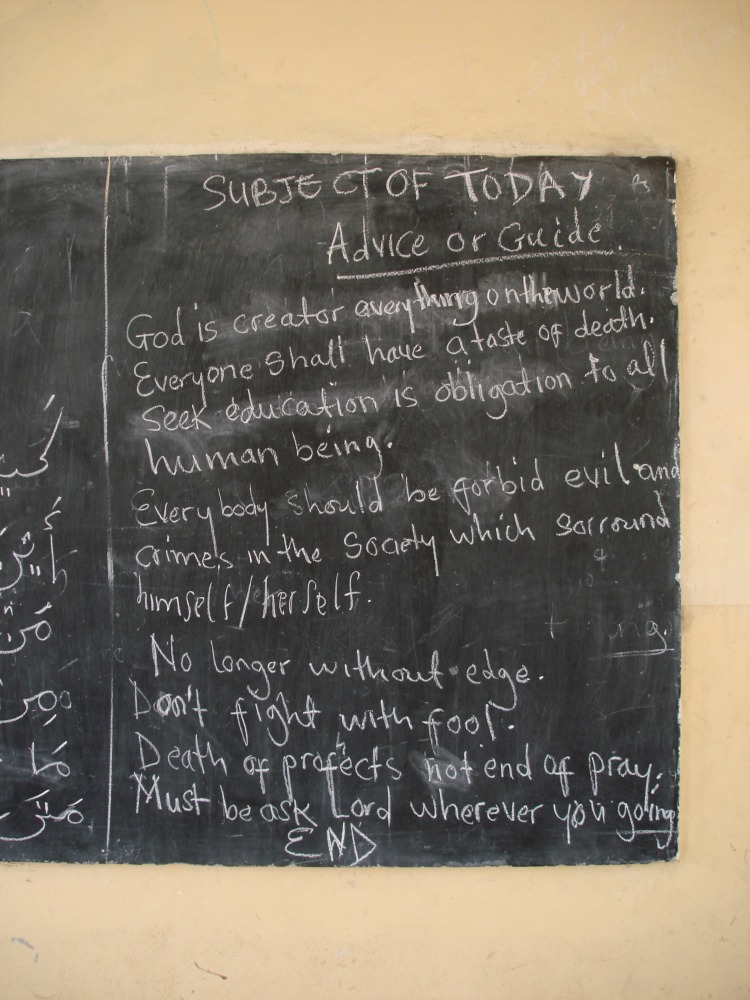 SUBJECT OF TODAY
Advice or Guide.
God is creator averything on the world.
Everyone shall have a taste of death.
Seek education is obligation to all
human being.
Every body should be forbid evil and
crimes in the Society which sorround
himself/herself.
No longer without edge.
Don't fight with fool.
Death of profects not end of pray.
Must be ask Lord wherever you going
END